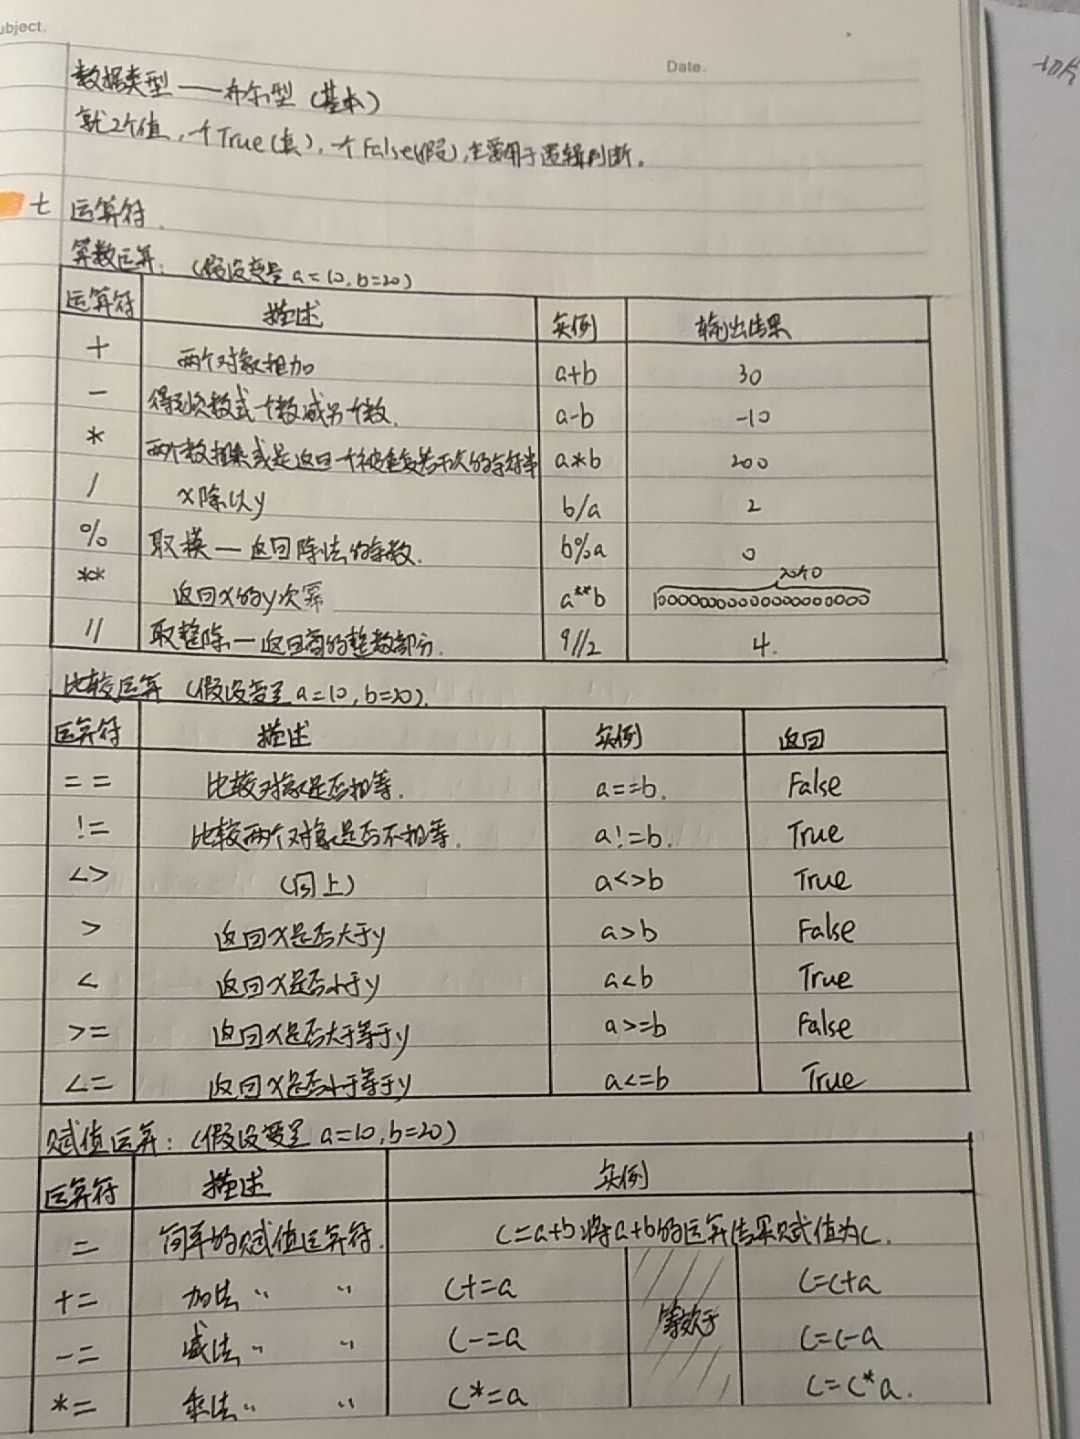 ubject.
Date.
数据类型——布尔型（基本）
就2个值,一个True(真),一个False(假),主要用于逻辑判断.
七 运算符.
算数运算:（假设变量a=10,b=20）
运算符 描述 实例 输出结果
+ 两个对象相加 a+b 30
- 得到负数或一个数减另一个数. a-b -10
* 两个数相乘或是返回一个被重复若干次的字符串 a*b 200
/ x除以y b/a 2
% 取模—返回除法的余数. b%a 0
20个0
** 返回x的y次幂 a**b 100000000000000000000
// 取整除—返回商的整数部分. 9//2 4.
比较运算（假设变量a=10,b=20).
运算符 描述 实例 返回
== 比较对象是否相等. a==b. False
!= 比较两个对象是否不相等. a!=b. True
<> (同上) a<>b True
> 返回x是否大于y a>b False
< 返回x是否小于y a<b True
>= 返回x是否大于等于y a>=b False
<= 返回x是否小于等于y a<=b True
赋值运算:（假设变量a=10,b=20）
运算符 描述 实例
= 简单的赋值运算符. C=a+b将a+b的运算结果赋值为C.
+= 加法〃 〃 C+=a 等效于 C=C+a
-= 减法〃 〃 C-=a C=C-a
*= 乘法〃 〃 C*=a C=C*a.